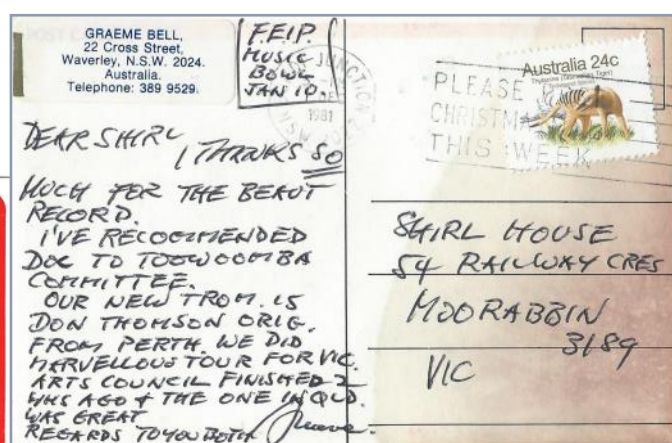 GRAEME BELL,
22 Cross Street,
Waverley, N.S.W. 2024.
Australia.
Telephone: 389 9529.
F.E.I.P.
MUSIC
BOWL
JAN 10.
JUNCTION
1981
PLEASE
CHRISTMA
THIS WEEK
Australia 24c
DEAR SHIRL
, THANKS SO
MUCH FOR THE BEAUT
RECORD.
I'VE RECOMMENDED
DOC TO TOOWOOMBA
COMMITTEE.
OUR NEW TROM. IS
DON THOMSON ORIG.
FROM PERTH. WE DID
MARVELLOUS TOUR FOR VIC.
ARTS COUNCIL FINISHED 2
WKS AGO & THE ONE IN QLD.
WAS GREAT
REGARDS TO YOU BOTH
Graeme.
SHIRL HOUSE
54 RAILWAY CRES
MOORABBIN
3189
VIC